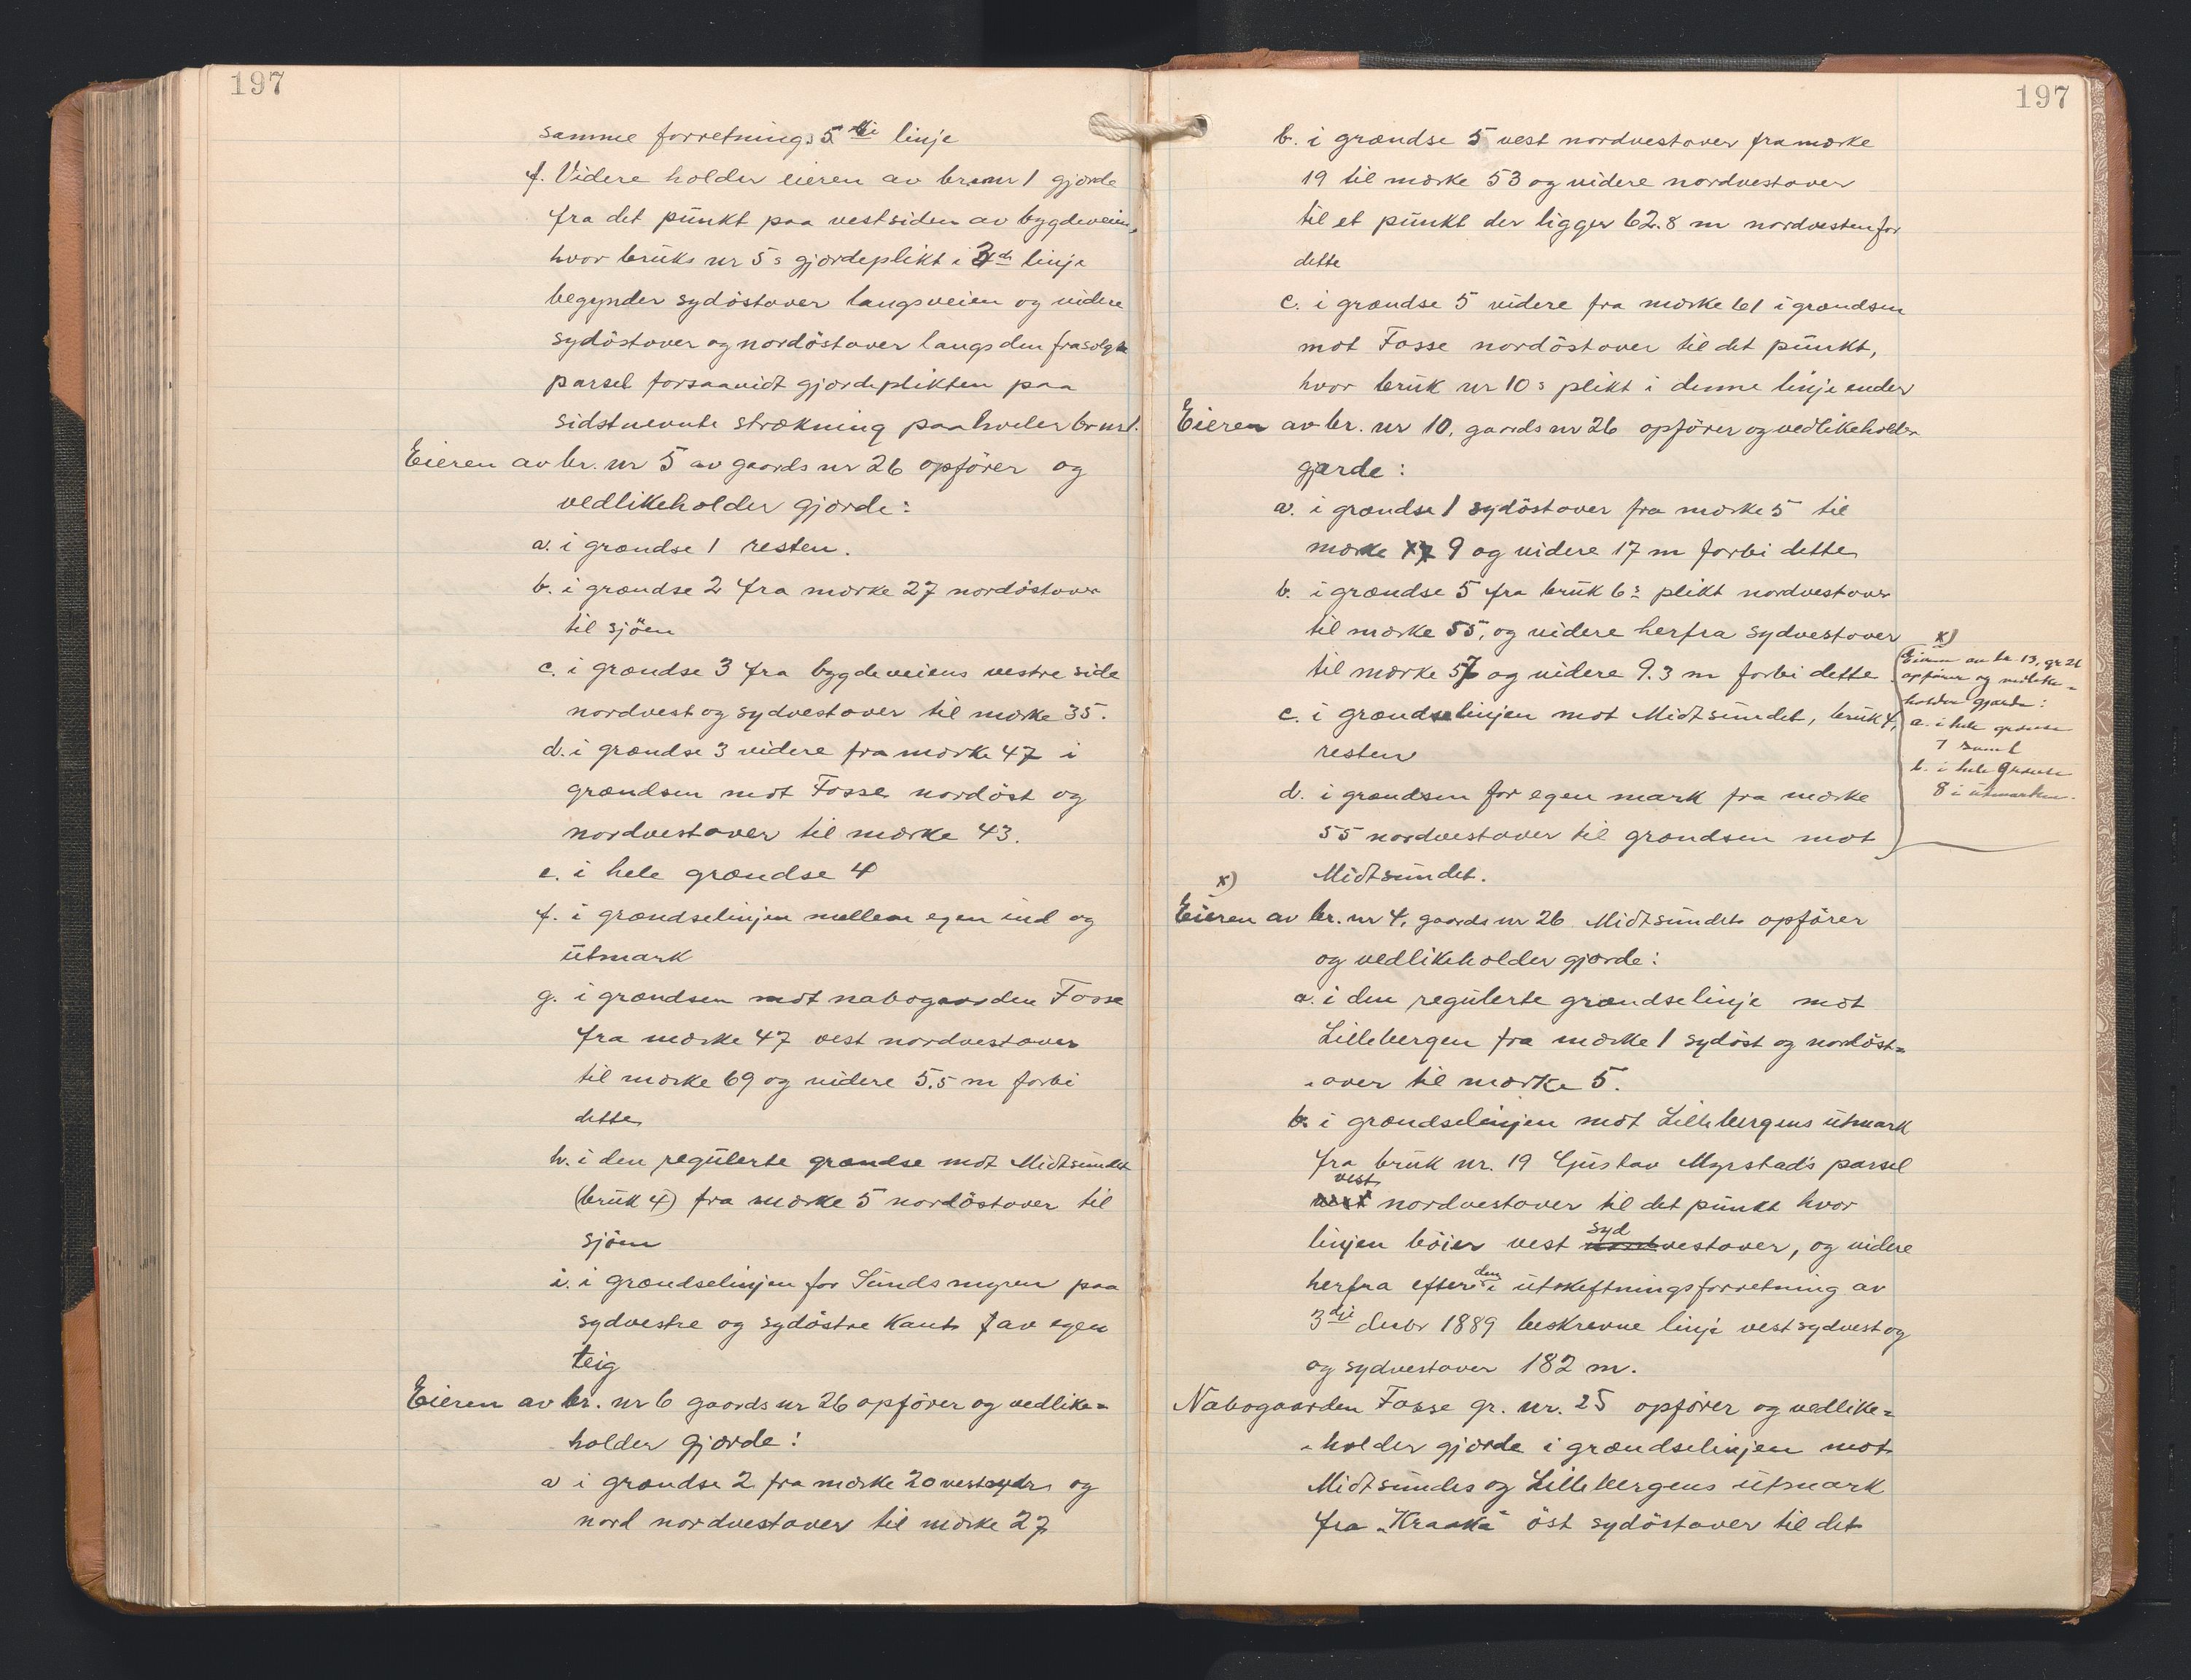 197
samme forretnings 5te linje
f. Videre holder eieren av br. nr 1 gjærde
fra det punkt paa vestsiden av bygdeveien,
hvor bruks nr 5s gjærdeplikt i 3di linje
begynder sydöstover langs veien og videre
sydöstover og nordöstover langs den frasolgte
parsel forsaavidt gjærdeplikten paa
sidstnevnte strækning paahviler br nr 1.
Eieren av br. nr 5 av gaards nr 26 opförer og
vedlikeholder gjærde:
a. i grændse 1 resten.
b. i grændse 2 fra mærke 27 nordöstover
til sjöen
c. i grændse 3 fra bygdeveiens vestre side
nordvest og sydvestover til mærke 35.
d. i grændse 3 videre fra mærke 47 i
grændsen mot Fosse nordöst og
nordvestover til mærke 43.
e. i hele grændse 4
f. i grændselinjen mellem egen ind og
utmark
g. i grændsen mot nabogaarden Fosse
fra mærke 47 vest nordvestover
til mærke 69 og videre 5.5 m forbi
dette
h. i den regulerte grændse mot Midtsundet
(bruk 4) fra mærke 5 nordöstover til
sjöen
i. i grændselinjen for Sundsmyren paa
sydvestre og sydöstre kant av egen
teig
Eieren av br. nr 6 gaards nr 26 opförer og vedlike=
holder gjærde:
a i grændse 2 fra mærke 20 og
nord nordvestover til mærke 27
197
b. i grændse 5 vest nordvestover fra mærke
19 til mærke 53 og videre nordvestover
til et punkt der ligger 62.8 m nordvestenfor
dette
c. i grændse 5 videre fra mærke 61 i grændsen
mot Fosse nordöstover til det punkt,
hvor bruk nr 10s plikt i denne linje ender
Eieren av br. nr 10, gaards nr 26 opförer og vedlikeholder
gjærde:
a. i grændse 1 sydöstover fra mærke 5 til
mærke 9 og videre 17 m forbi dette
b. i grændse 5 fra bruk 6s plikt nordvestover
til mærke 55, og videre herfra sydvestover
til mærke 57 og videre 9.3 m forbi dette
c. i grændselinjen mot Midtsundet, bruk 4,
resten
d. i grændsen for egen mark fra mærke
55 nordvestover til grændsen mot
Midtsundet.
x)
Eieren av br. 13, gr 26
opförer og vedlike=
holder gjærde:
a. i hele grænse
7 samt
b. i hele grænse
8 i utmarken.
x)
Eieren av br. nr 4, gaards nr 26 Midtsundet opförer
og vedlikeholder gjærde:
a. i den regulerte grændselinje mot
Lillebergen fra mærke 1 sydöst og nordöst=
=over til mærke 5.
b. i grændselinjen mot Lillebergens utmark
fra bruk nr. 19 Gustav Myrstad's parsel
vest
nordvestover til det punkt hvor
syd
linjen böier vest vestover, og videre
den
herfra efter i utskiftningsforretning av
3dje decbr 1889 beskrevne linje vestsydvest og
og sydvestover 182 m.
Nabogaarden Fosse gr. nr. 25 opförer og vedlike=
=holder gjærde i grændselinjen mot
Midtsundes og Lillebergens utmark
fra „Kraaka" öst sydöstover til det